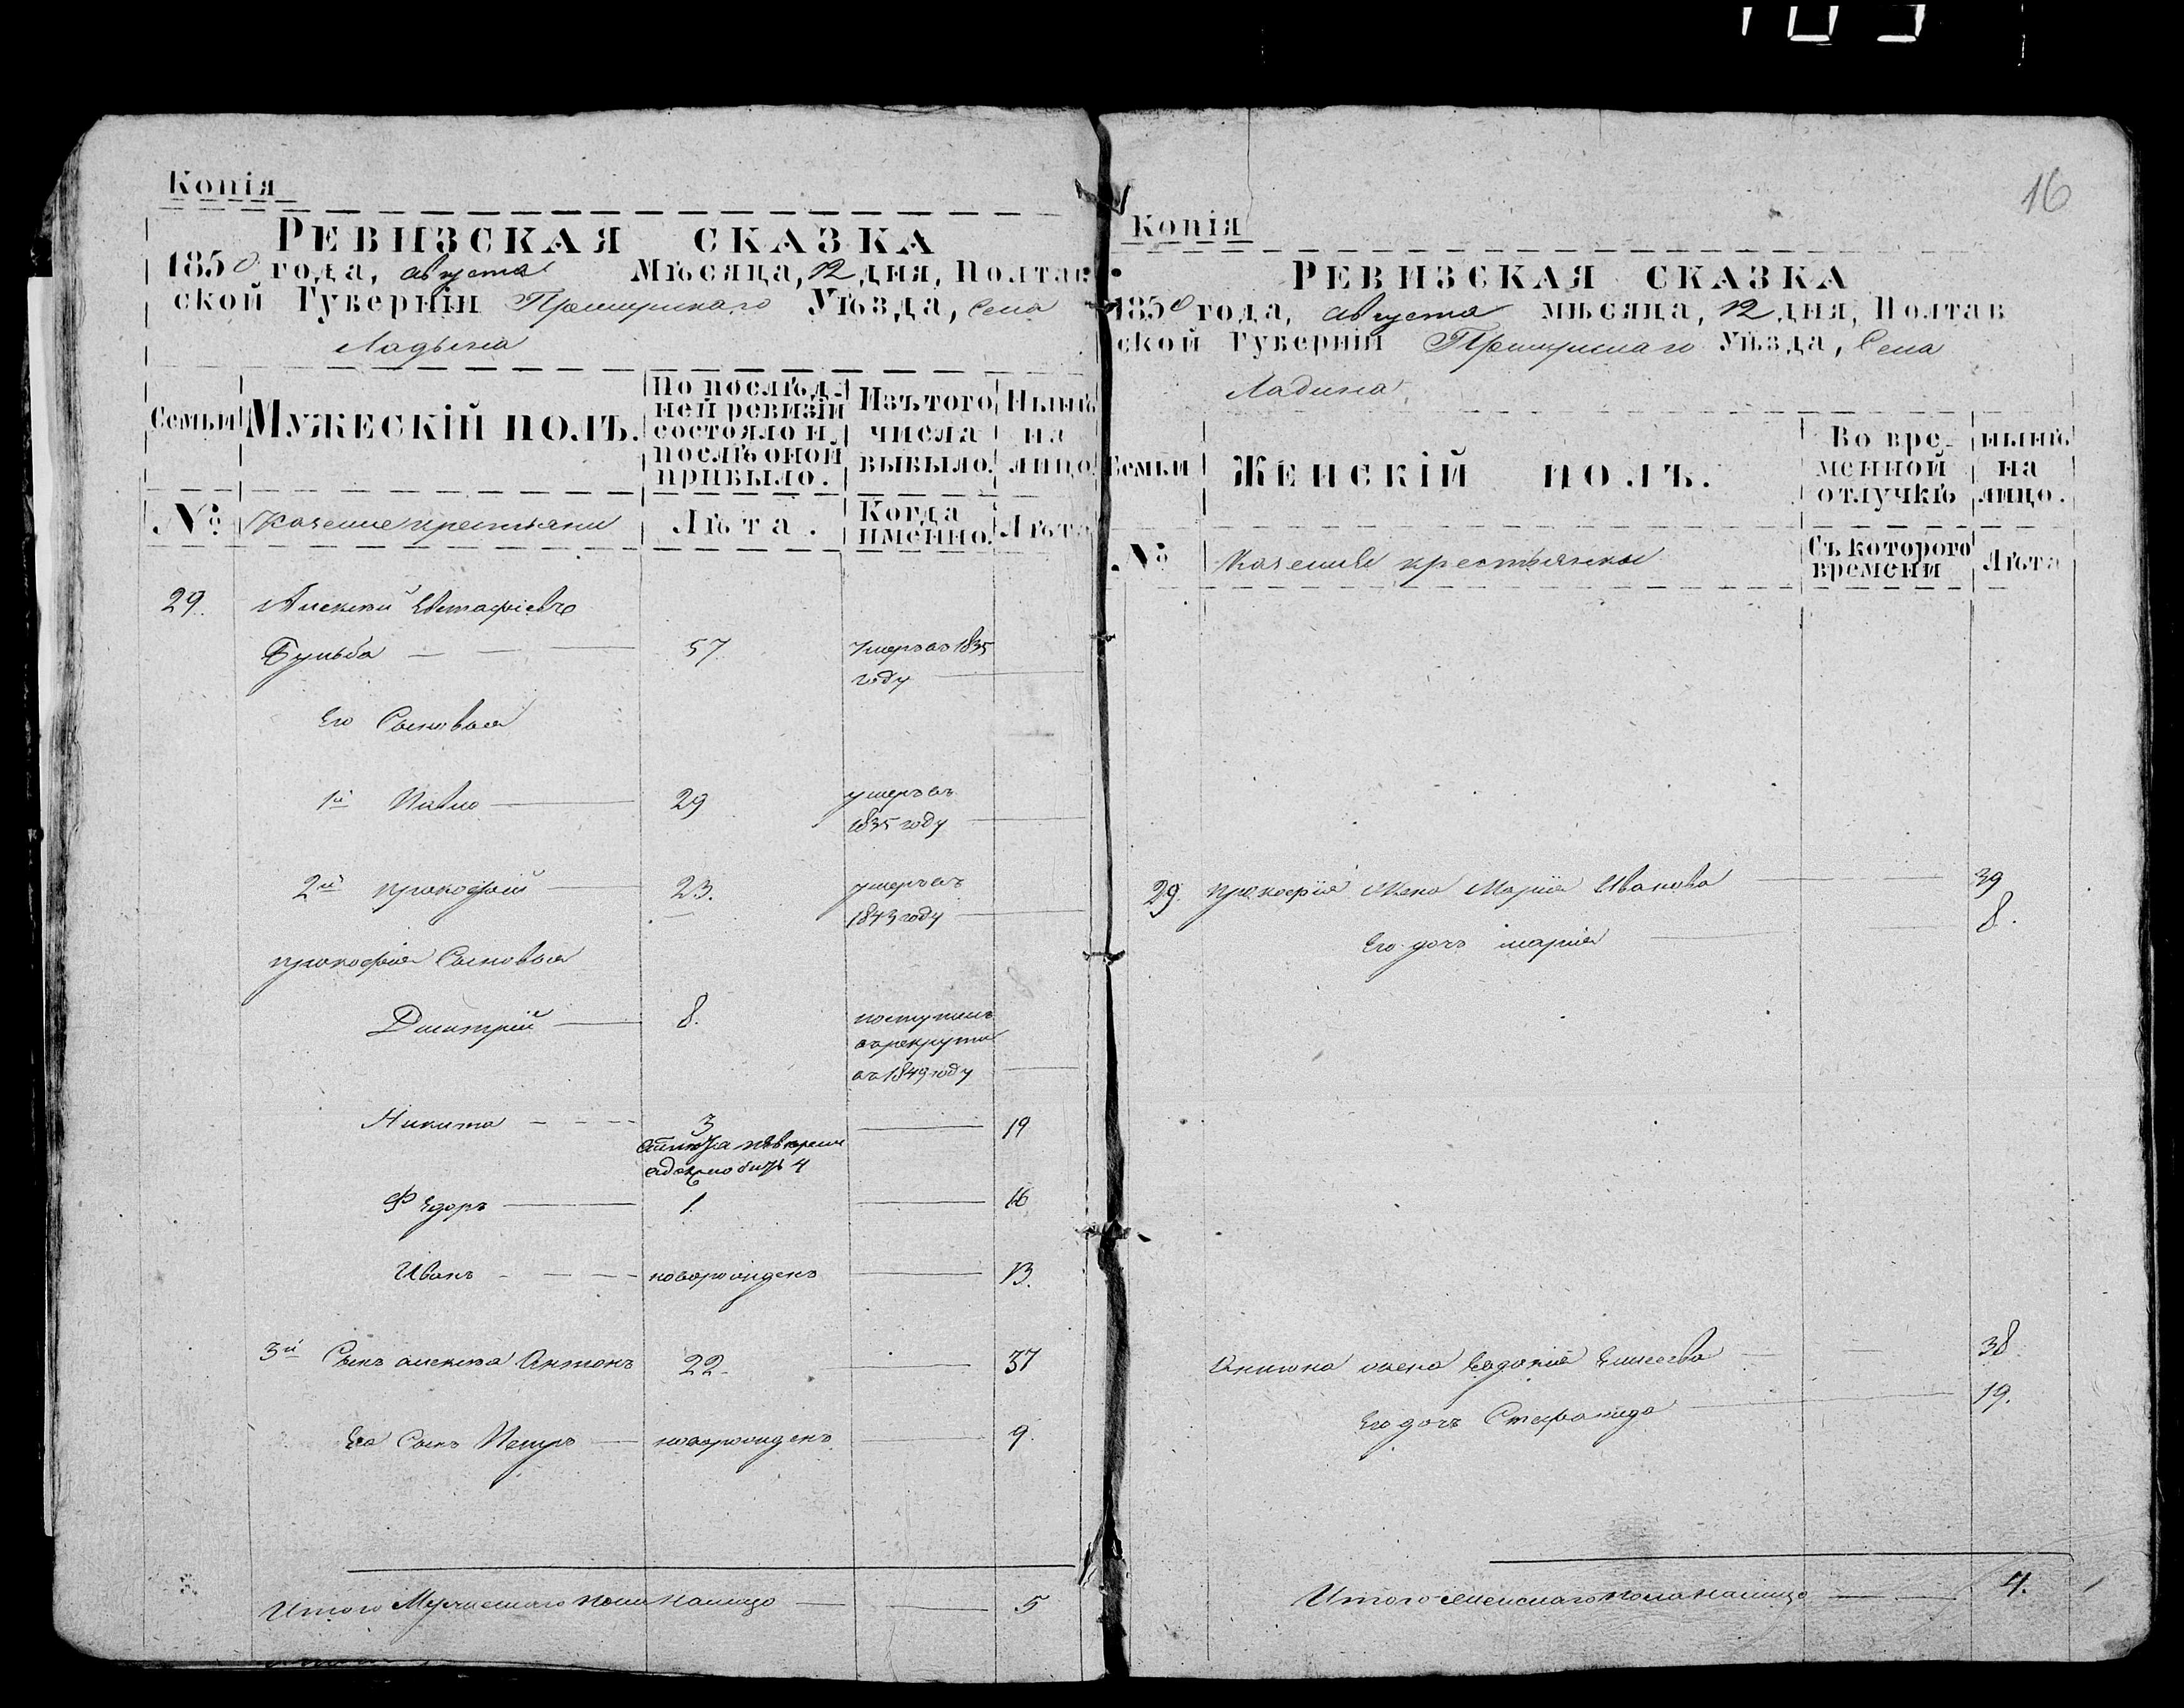 Копія
РЕВИЗСКАЯ СКАЗКА
1850 года, августа Мѣсяца, 12 дня, Полтав
ской Губерніи Прилуцкаго Уѣзда, Села
Ладына
Семьи МУЖЕСКІЙ ПОЛЪ. По послѣд-
ней ревизіи
состояло и
послѣ оной
прибыло. Изъ того
числа
выбыло. Нынѣ
на
лицо
№ Казенные крестьяни Лѣта. Когда
именно. Лѣта
29. Алексей Евстафіевъ
Бульба 57 Умеръ въ 1835
году
Его Сыновья
1й Павло 29 умеръ въ
1835 году
2й прокофій 23. умеръ въ
1843 году
прокофія Сыновья
Дмитрій 8. поступилъ
въ рекруты
въ 1849 году
Никита 3 19
4
Федоръ 1. 16
Иванъ новорожденъ 13.
3й Сынъ алексея Антонъ 22. 37
Его Сынъ Петръ новорожденъ 9.
Итого Мужескаго пола налицо 5
16
Копія
РЕВИЗСКАЯ СКАЗКА
1850 года, августа мѣсяца, 12 дня, Полтав
ской Губерніи Прилуцкаго Уѣзда, Села
Ладина
Семьи ЖЕНСКІЙ ПОЛЪ. Во вре-
менной
отлучкѣ нынѣ
на
лицо.
№ Казенные крестьянки Съ которого
времени Лѣта
29. прокофія жена Марія Иванова 39
Его дочь марія 8.
Антона жена Евдокія Елисеева 38.
Его дочь Стефанида 19.
Итого женскаго пола налицо 4.